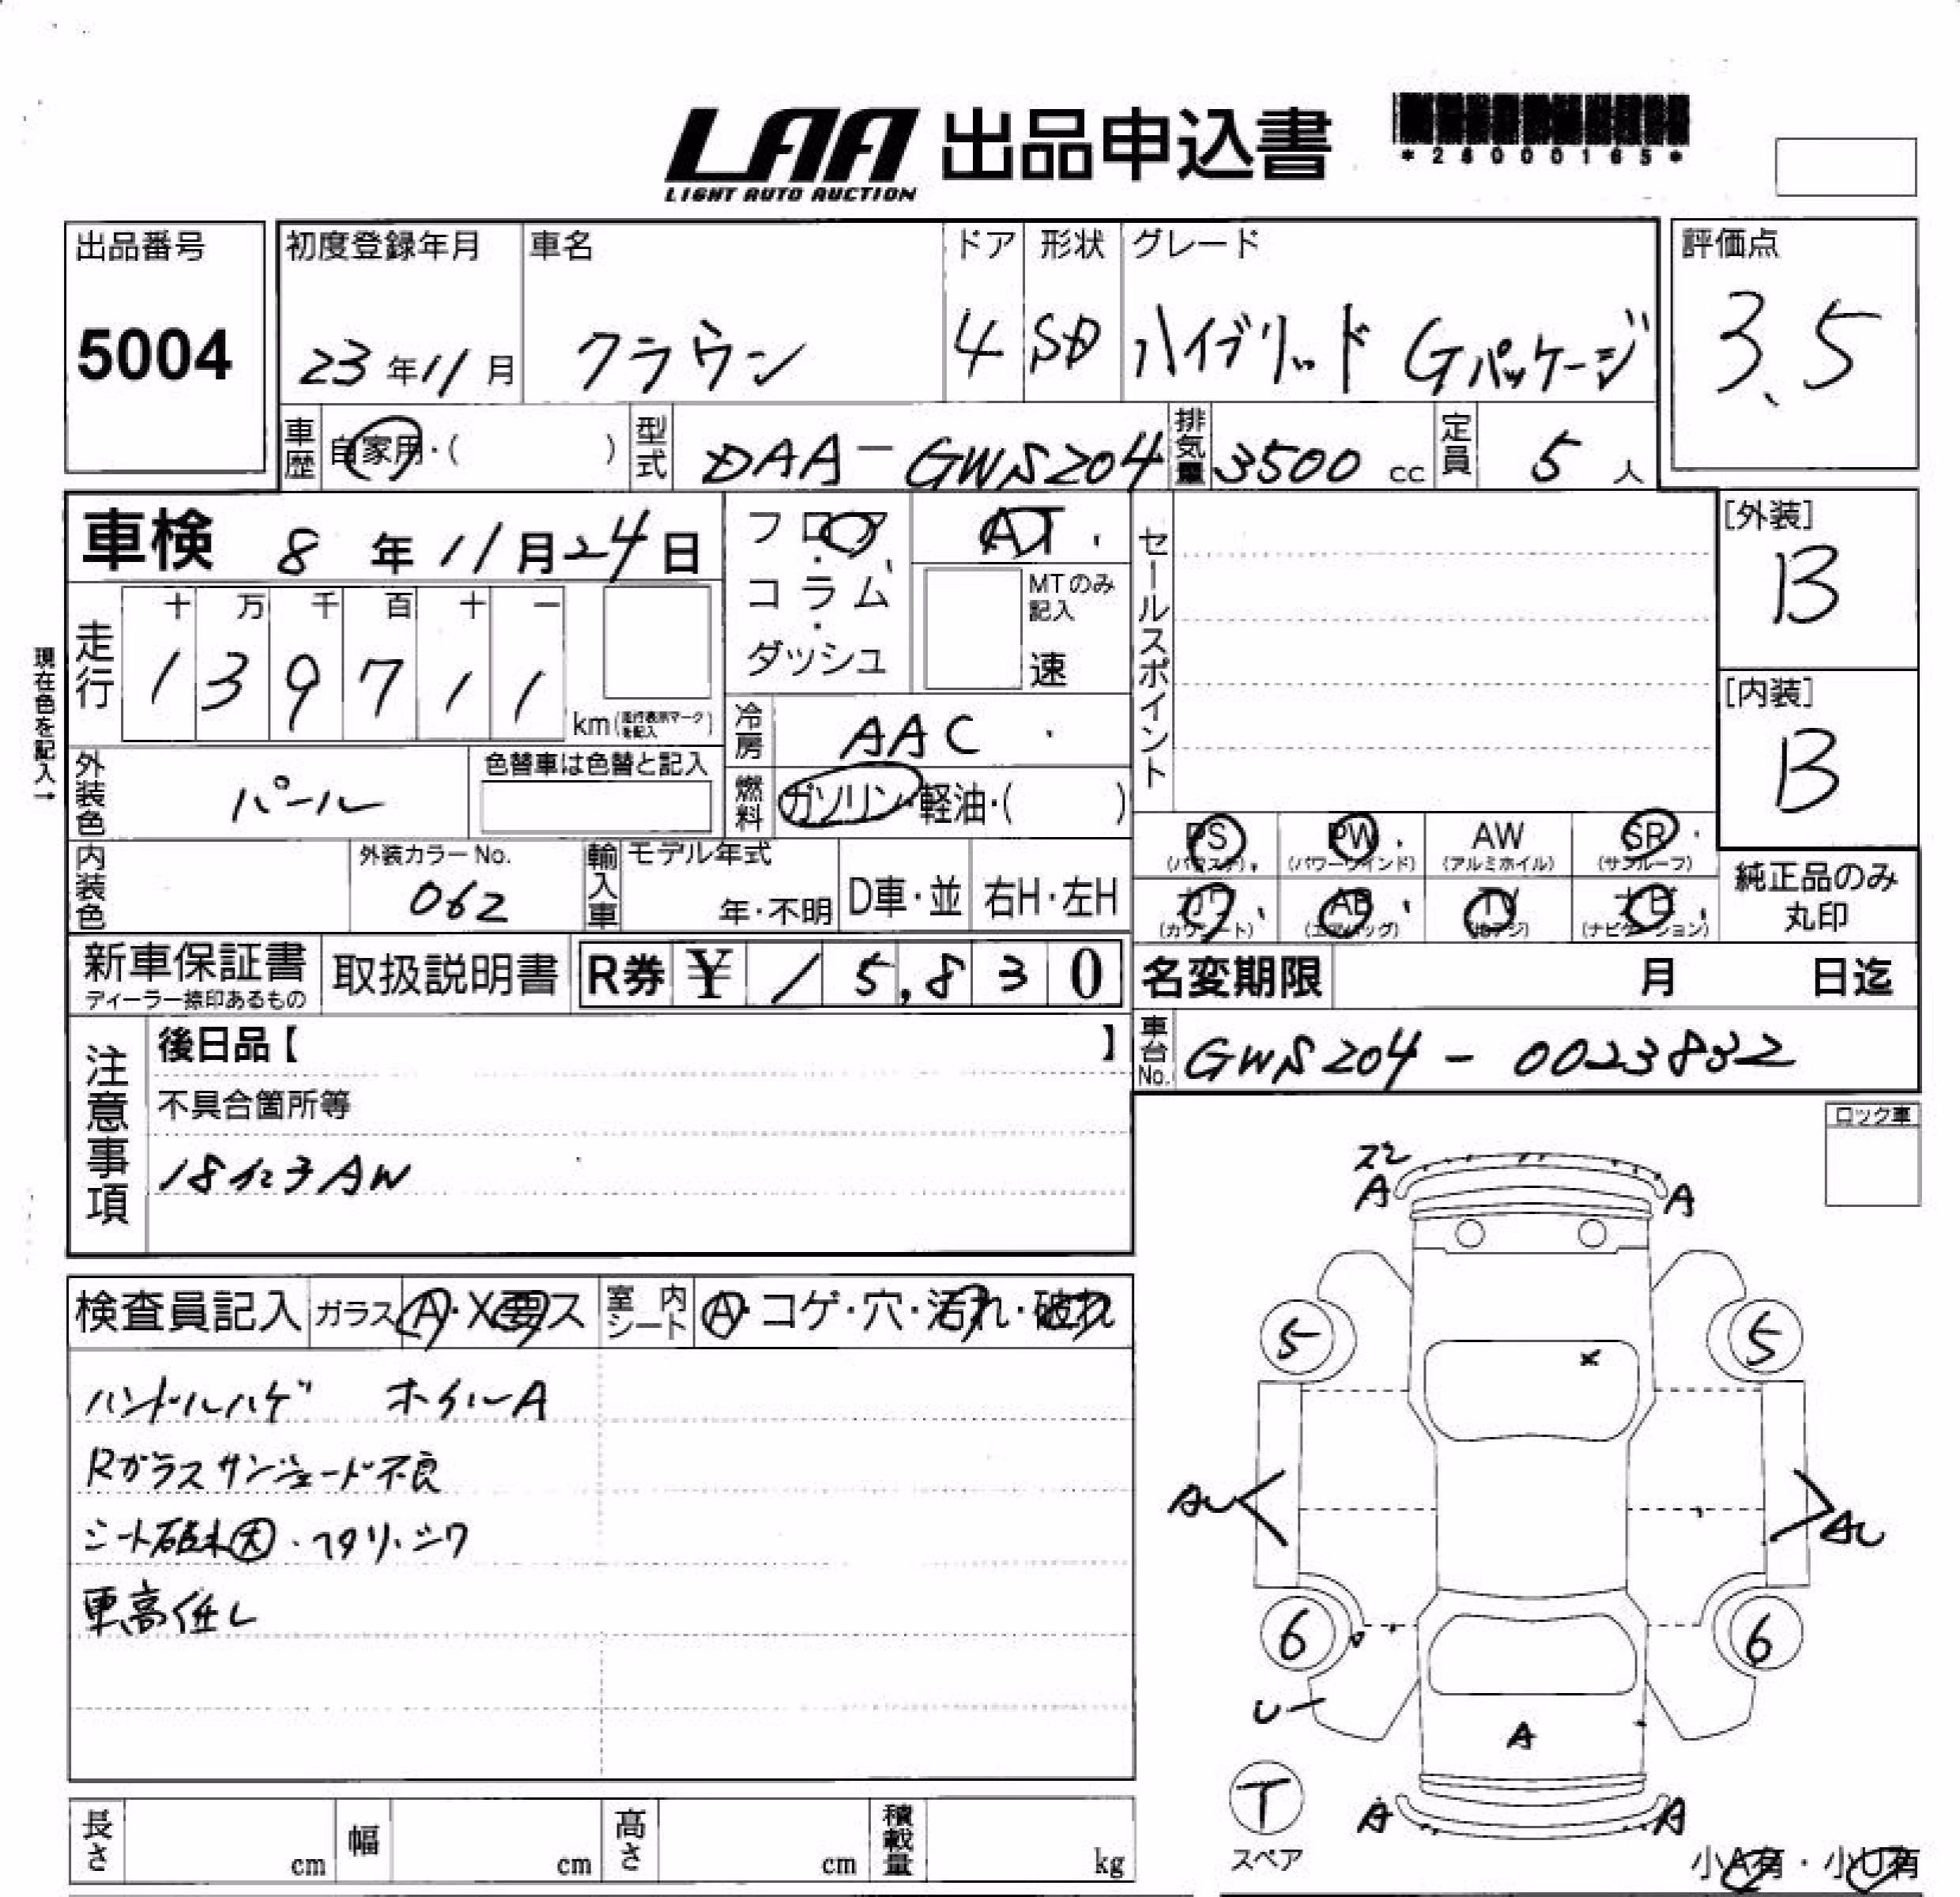 LAA 出品申込書
LIGHT AUTO AUCTION
*26000165*
出品番号
5004
初度登録年月
23年11月
車名
クラウン
ドア
4
形状
SD
グレード
ハイブリッド Gパッケージ
評価点
3.5
車歴 自家用・( )
型式 DAA-GWS204
排気量 3500 cc
定員 5 人
車検 8年11月24日
フロア・コラム・ダッシュ
AT
MTのみ記入
速
セールスポイント
[外装]
B
[内装]
B
現在色を記入→
走行
十 万 千 百 十 一
1 3 9 7 1 1
km(走行表示マークを記入)
冷房 AAC
燃料 ガソリン・軽油・( )
外装色 パール
色替車は色替と記入
内装色
外装カラーNo.
062
輸入車
モデル年式
年・不明
D車・並
右H・左H
PS (パワステ)
PW (パワーウインド)
AW (アルミホイル)
SR (サンルーフ)
カワ (カワシート)
AB (エアバッグ)
TV
ナビ (ナビゲーション)
純正品のみ
丸印
新車保証書
ディーラー捺印あるもの
取扱説明書
R券 ¥ 15,830
名変期限 月 日迄
車台No. GWS204-0023832
注意事項
後日品【 】
不具合箇所等
18インチAW
ロック車
検査員記入
ガラス A・X要ス
室内シート A・コゲ・穴・汚れ・破れ
ハンドルハゲ ホイルA
Rガラスサンシェード不良
シート破れ大・ヘタリ・シワ
車高低し
ズレ
A
A
5
5
×
AU
AU
6
6
U
A
T
スペア
A
A
小A有・小U有
長さ cm
幅 cm
高さ cm
積載量 kg